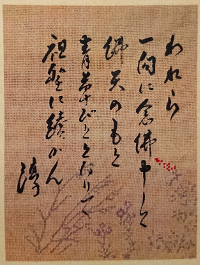 われら
一向に念佛申して
佛天のもと
青草びとなりて
祖聖に続かん